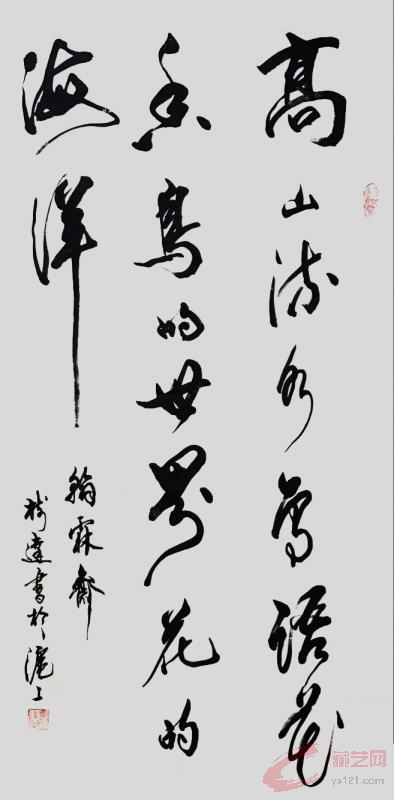 高山流水鸟语花
香鸟的世界花的
海洋
翰霖斋
树达书於滬上
藏艺网
ys121.com